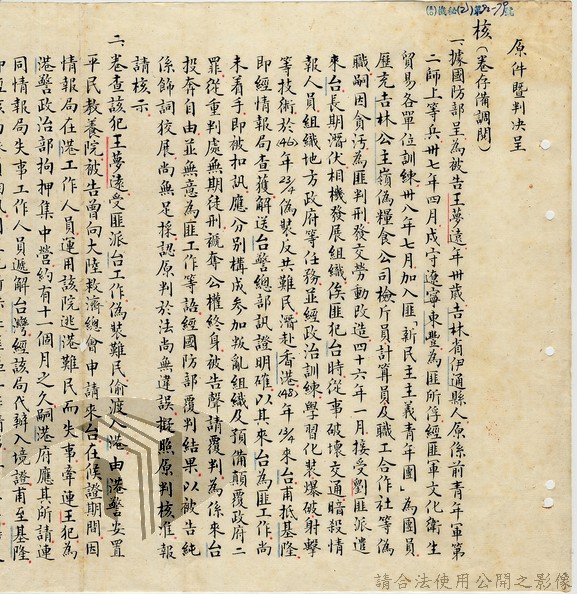 原件暨判决呈
核（卷存備調閱）
一、據國防部呈為被告王夢遠年卅歲吉林省伊通縣人原係前青年軍第
二師上等兵卅七年四月戍守遼寧東豐為匪所俘經匪軍文化衛生
貿易各單位訓練卅八年七月加入匪「新民主主義青年團」為團員
歷充吉林公主嶺偽糧食公司檢斤員計算員及職工合作社等偽
職嗣因貪污為匪判刑發交勞動改造四十六年一月接受劉匪派遣
來台長期潛伏相機發展組織俟匪犯台時從事破壞交通暗殺情
報人員組織地方政府等任務並經政治訓練學習化裝爆破射擊
等技術於(46)年23/4偽裝反共難民潛赴香港(48)年13/4來台甫抵基隆
即經情報局查獲解送台警總部訊證明確以其來台為匪工作尚
未着手即被扣訊應分別構成參加叛亂組織及預備顛覆政府二
罪從重判處無期徒刑褫奪公權終身被告聲請覆判為係來台
投奔自由並無意為匪工作等語經國防部覆判結果以被告純
係飾詞狡展尚無足採認原判於法尚無違誤擬照原判核准報
請核示
二、卷查該犯王夢遠受匪派台工作偽裝難民偷渡入港由港警安置
平民教養院被告曾向大陸救濟總會申請來台在候證期間因
情報局在港工作人員運用該院逃港難民而失事牽連王犯為
港警政治部拘押集中營約有十一個月之久嗣港府應其所請連
同情報局失事工作人員遞解台灣經該局代辦入境證甫至基隆
請合法使用公開之影像